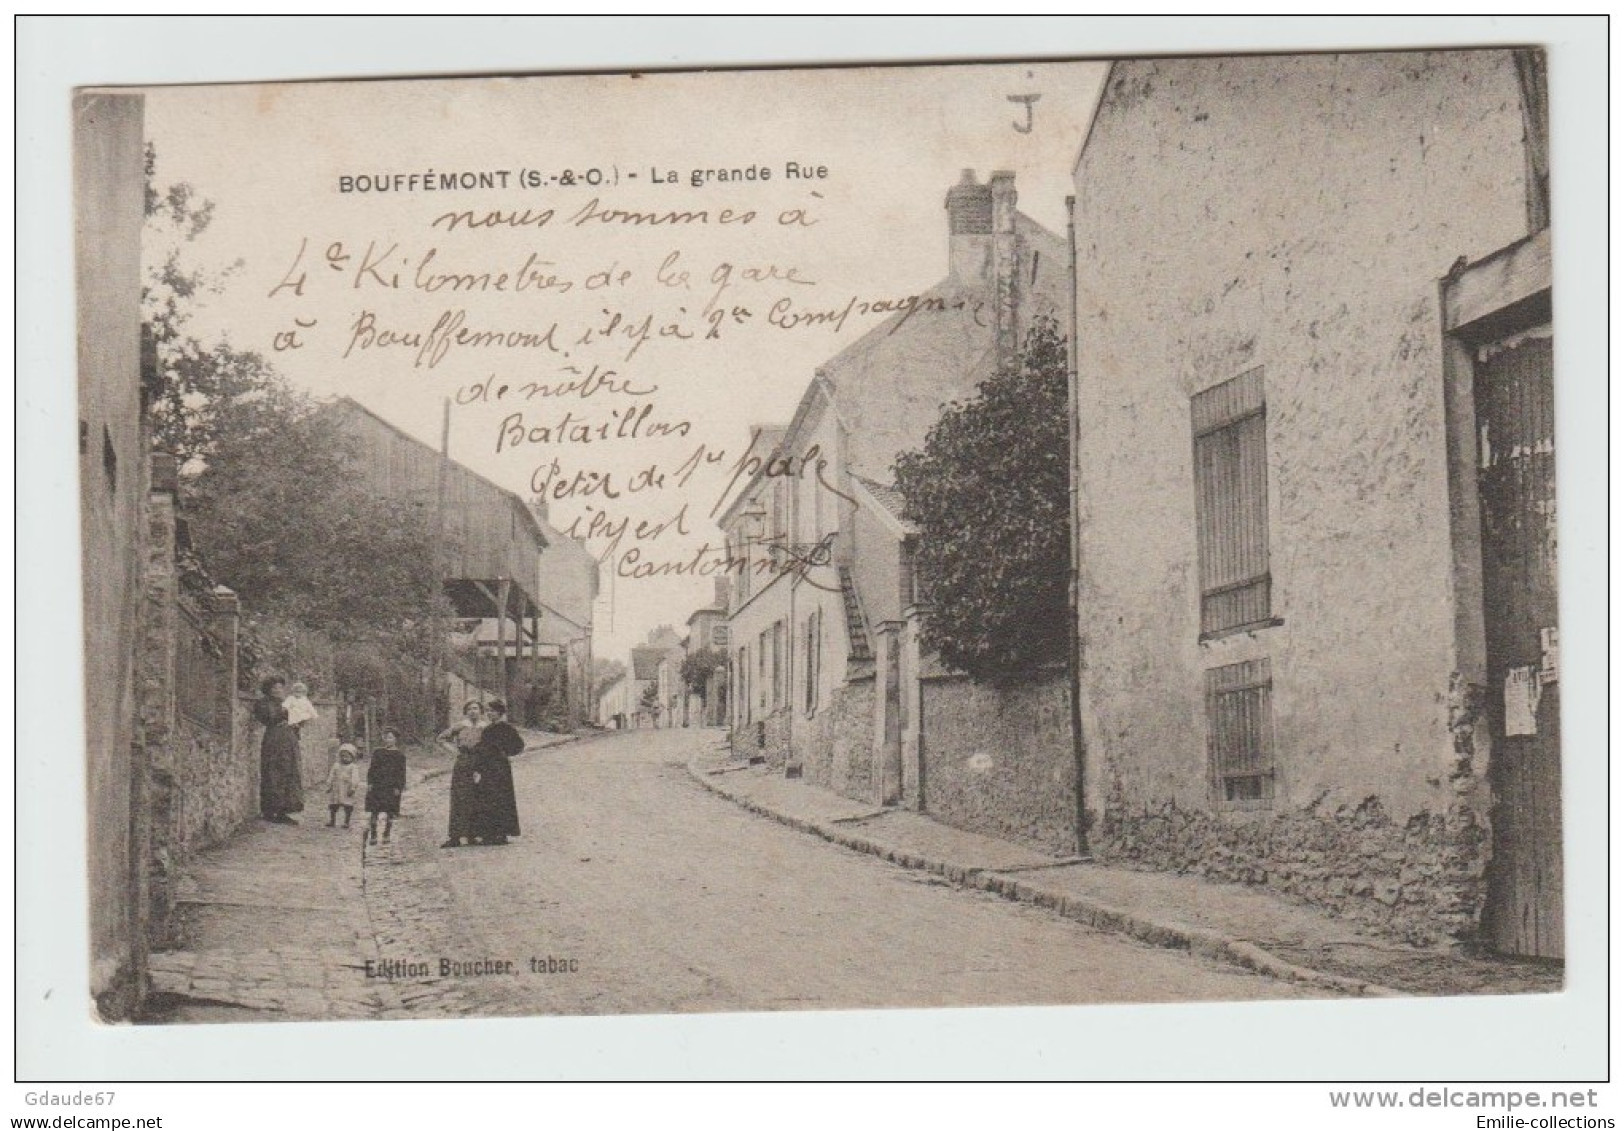 J
BOUFFÉMONT (S.-&-O.) - La grande Rue
nous sommes à
4e Kilometres de la gare
à Bouffemont il y à 2e Compagnie
de nôtre
Bataillos
Petit de
il y est
Cantonné
Edition Boucher, tabac
Gdaude67
www.delcampe.net
www.delcampe.net
Emilie-collections